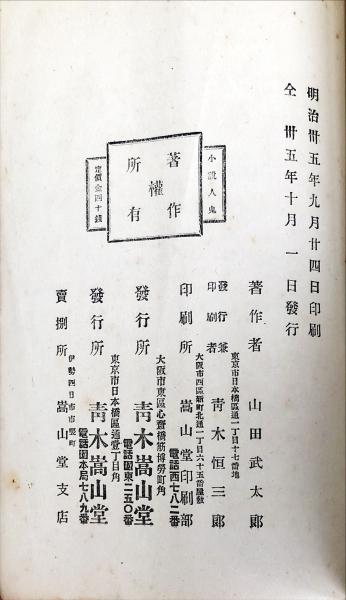 明治卅五年九月廿四日印刷
仝 卅五年十月一日發行
小說人鬼
著作權所有
定價金四十錢
著作者 山田武太郎
東京市日本橋區通一丁目十七番地
發行兼印刷者 靑木恒三郞
大阪市西區新町北通一丁目六十五番屋敷
印刷所 嵩山堂印刷部
電話西七八二番
大阪市東區心齋橋筋博勞町角
發行所 靑木嵩山堂
電話園東二五〇番
東京市日本橋區通壹丁目角
發行所 靑木嵩山堂
電話園本局七八九番
伊勢四日市市竪町
賣捌所 嵩山堂支店